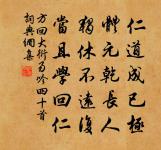 仁道成已極
體元乾長人
猶休不遠復
當且學回仁
方回大衍易吟四十首
詞典網集